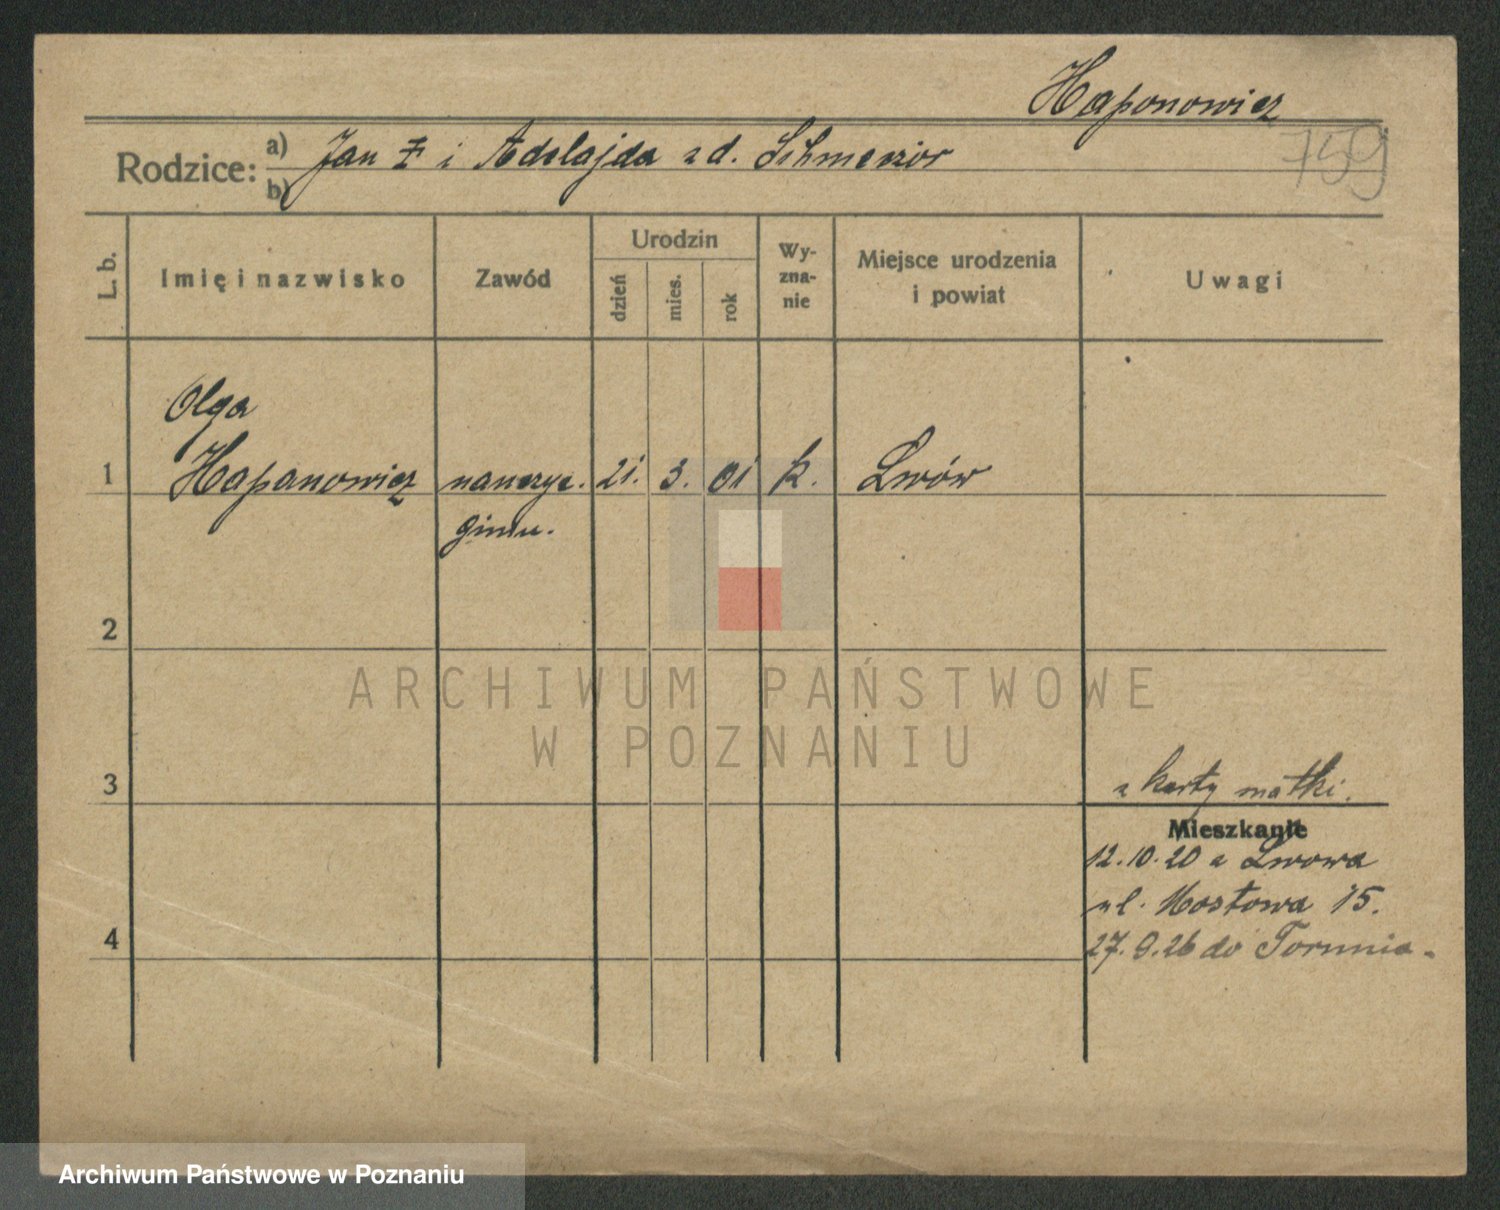 Haponowicz
759
Rodzice: a) Jan ‡ i Adelajda z d. Schmezior
b)
L. b.
Imię i nazwisko
Zawód
Urodzin
dzień
mies.
rok
Wy-
zna-
nie
Miejsce urodzenia
i powiat
Uwagi
Olga
1 Hapanowicz nauczyc. 21. 3. 01 k. Lwów
gimn.
2
ARCHIWUM PAŃSTWOWE
W POZNANIU
3
z karty matki.
Mieszkanie
12.10.20 z Lwowa
ul. Mostowa 15.
4
27.9.26 do Torunia.
Archiwum Państwowe w Poznaniu